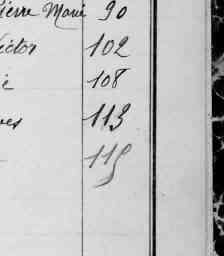 Pierre Marie 90
ictor 102
108
113
115